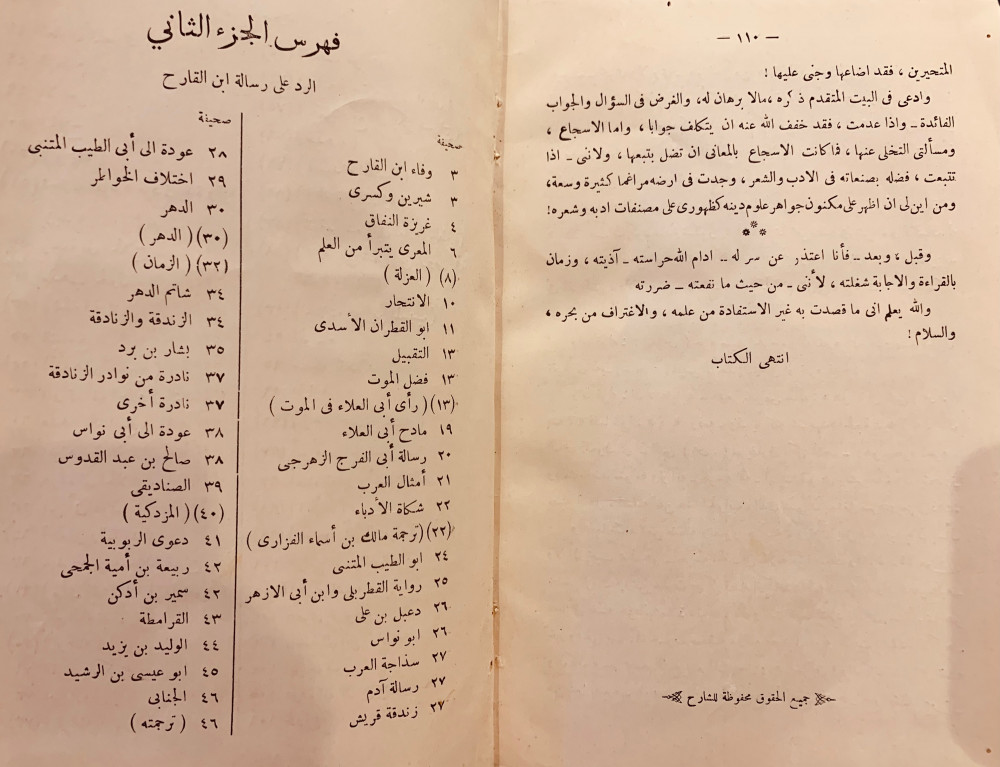 — ١١٠ —
المتحيرين ، فقد اضاعها وجنى عليها !
وادعى فى البيت المتقدم ذكره ،مالا برهان له، والغرض فى السؤال والجواب
الفائدة ــ واذا عدمت ، فقد خفف الله عنه ان يتكلف جوابا ، واما الاسجاع ،
ومسألتى التخلى عنها ، فما كانت الاسجاع بالمعانى ان تضل بتبعها ، ولانى ــ اذا
تتبعت ، فضله بصنعاته فى الادب والشعر ، وجدت فى ارضه مراغما كثيرة وسعة،
ومن اين لى ان اظهر على مكنون جواهر علوم دينه كظهورى على مصنفات ادبه وشعره!
***
وقبل ، وبعد ــ فأنا اعتذر عن سر له ــ ادام الله حراسته ــ آذيته ، وزمان
بالقراءة والاجابة شغلته ، لأننى ــ من حيث ما نفعته ــ ضررته
والله يعلم انى ما قصدت به غير الاستفادة من علمه ، والاغتراف من بحره ،
والسلام !
انتهى الكتاب
جميع الحقوق محفوظة للشارح
فهرس الجزء الثاني
الرد على رسالة ابن القارح
صحيفة
٣ وفاء ابن القارح
٣ شيرين وكسرى
٤ غريزة النفاق
٦ المعرى يتبرأ من العلم
(٨) ( العزلة )
١٠ الانتحار
١١ ابو القطران الأسدى
١٣ التقبيل
١٣ فضل الموت
(١٣) ( رأى أبى العلاء فى الموت )
١٩ مادح أبى العلاء
٢٠ رسالة أبى الفرج الزهرجى
٢١ أمثال العرب
٢٢ شكاة الأدباء
(٢٢) (ترجمة مالك بن أسماء الفزارى )
٢٤ ابو الطيب المتنبى
٢٥ رواية القطربلى وابن أبى الازهر
٢٦ دعبل بن على
٢٦ ابو نواس
٢٧ سذاجة العرب
٢٧ رسالة آدم
٢٧ زندقة قريش
صحيفة
٢٨ عودة الى أبى الطيب المتنبى
٢٩ اختلاف الخواطر
٣٠ الدهر
(٣٠) ( الدهر )
(٣٢) ( الزمان )
٣٤ شاتم الدهر
٣٤ الزندقة والزنادقة
٣٥ بشار بن برد
٣٧ نادرة من نوادر الزنادقة
٣٧ نادرة أخرى
٣٨ عودة الى أبى نواس
٣٨ صالح بن عبد القدوس
٣٩ الصناديقى
(٤٠) ( المزدكية )
٤١ دعوى الربوبية
٤٢ ربيعة بن أمية الجمحى
٤٢ سمير بن أدكن
٤٣ القرامطة
٤٤ الوليد بن يزيد
٤٥ ابو عيسى بن الرشيد
٤٦ الجنابى
٤٦ ( ترجمته )